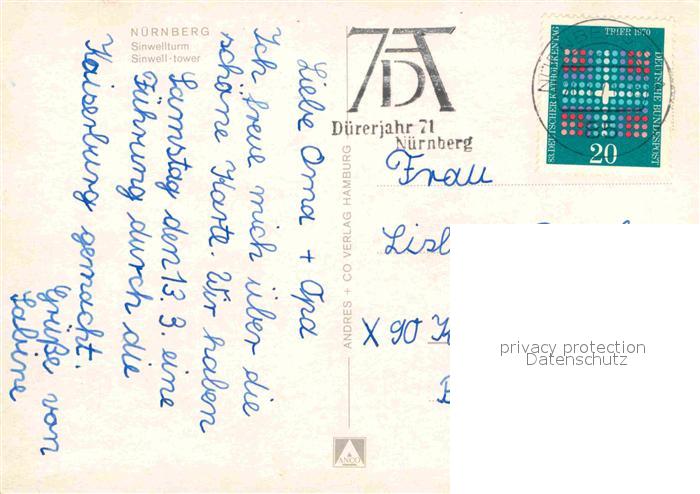 NÜRNBERG
Sinwellturm
Sinwell-tower
Liebe Oma + Opa
Ich freue mich über die
schöne Karte. Wir haben
Samstag den 13. 3. eine
Führung durch die
Kaiserburg gemacht.
Grüße von
Sabine
ANDRES + CO VERLAG HAMBURG
ANCO
Dürerjahr 71
Nürnberg
TRIER 1970
83. DEUTSCHER KATHOLIKENTAG
DEUTSCHE BUNDESPOST
20
Frau
X 90
privacy protection
Datenschutz